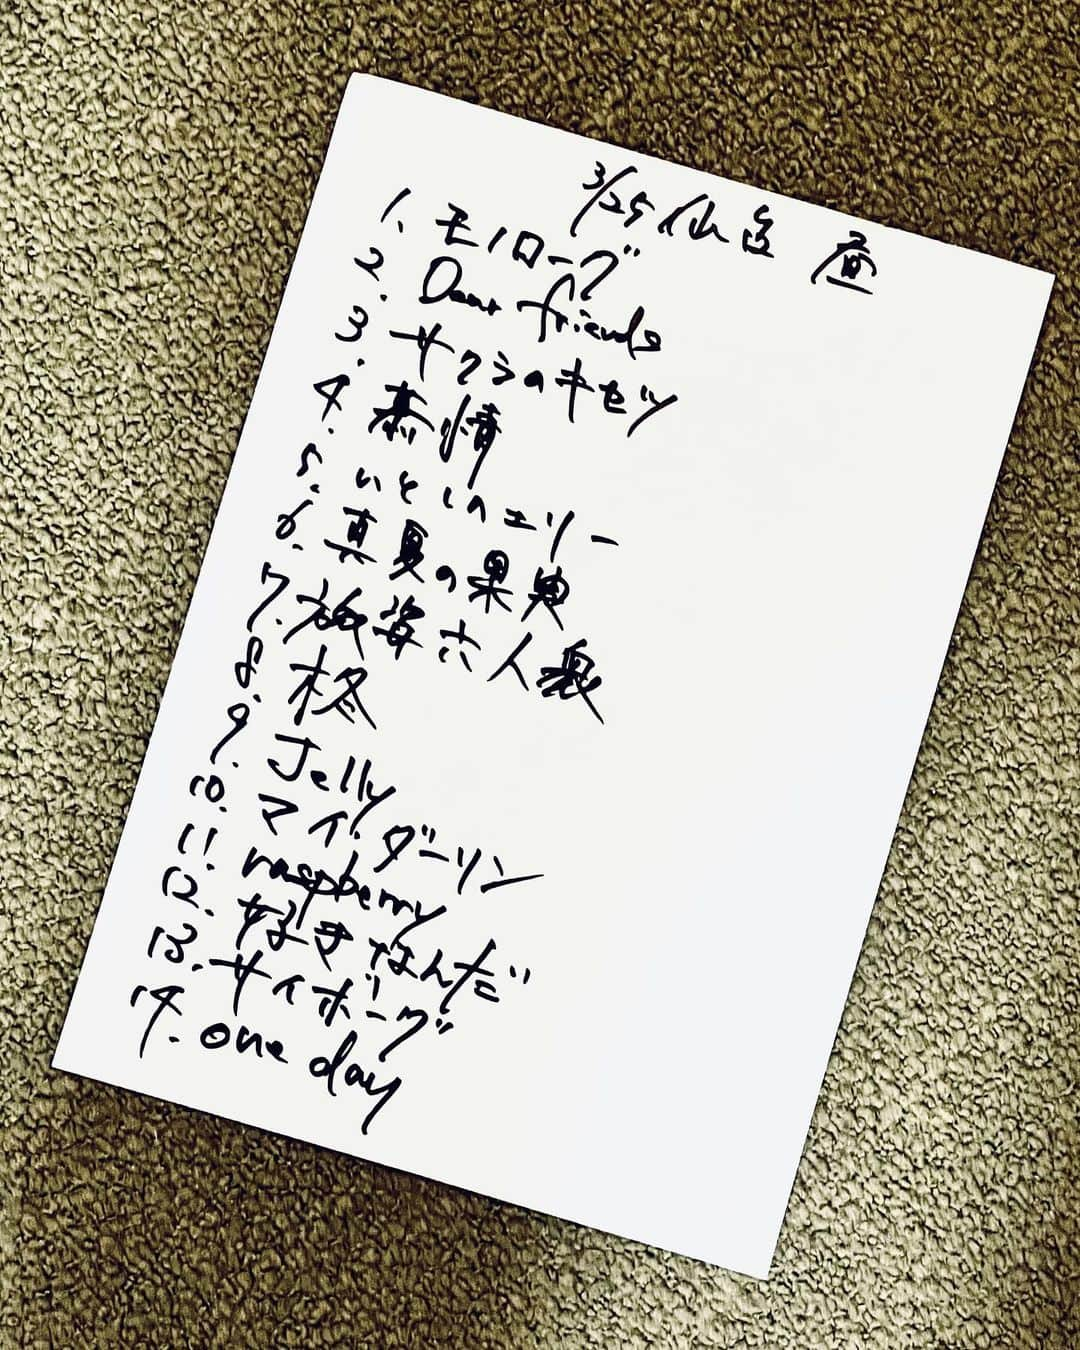 3/25 仙台 昼
1. モノローグ
2. Dear friends
3. サクラのキセツ
4. 慕情
5. いとしのエリー
6. 真夏の果実
7. 旅姿六人衆
8. 柊
9. Jelly
10. マイ・ダーリン
11. raspberry
12. 好きなんだ
13. サイボーグ
14. one day